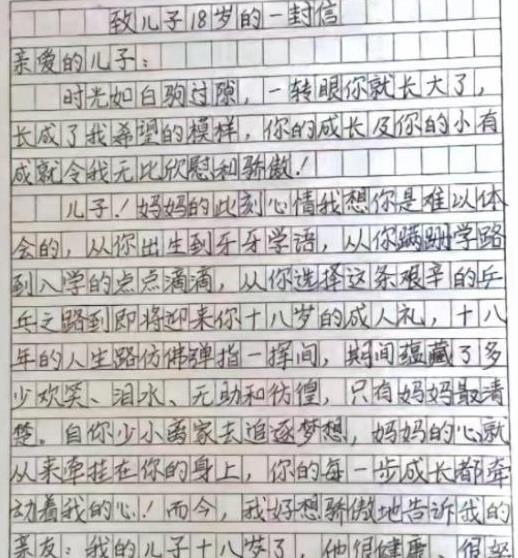 致儿子18岁的一封信
亲爱的儿子：
时光如白驹过隙，一转眼你就长大了，
长成了我希望的模样，你的成长及你的小有
成就令我无比欣慰和骄傲！
儿子！妈妈的此刻心情我想你是难以体
会的，从你出生到牙牙学语，从你蹒跚学路
到入学的点点滴滴，从你选择这条艰辛的乒
乓之路到即将迎来你十八岁的成人礼，十八
年的人生路仿佛弹指一挥间，期间蕴藏了多
少欢笑、泪水、无助和彷徨，只有妈妈最清
楚。自你少小离家去追逐梦想，妈妈的心就
从来牵挂在你的身上，你的每一步成长都牵
动着我的心！而今，我好想骄傲地告诉我的
亲友：我的儿子十八岁了，他很健康，很努